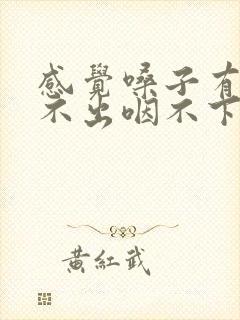 感覺嗓子有
不出咽不下
黃紅武